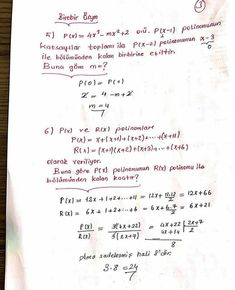 3
Birebir Özgün
5) P(x) = 4x² - mx² + 2 P(x-1) polinomunun
katsayılar toplamı ile P(x-2) polinomunun x-3
ile bölümünden kalan birbirine eşittir.
Buna göre m=?
P(0) = P(1)
2 = 4-m+2
m=4
6) P(x) ve R(x) polinomları
P(x) = x+(x+1)+(x+2)+...+(x+11)
R(x) = (x+1)(x+2)+(x+3)...+(x+6)
olarak veriliyor.
Buna göre P(x) polinomunun R(x) polinomu ile
bölümünden kalan kaçtır?
P(x) = 12x+1+2+...+11 = 12x+11.12/2 = 12x+66
R(x) = 6x+1+2+...+6 = 6x+6.7/2 = 6x+21
P(x)/R(x) = 3(4x+22)/3(2x+7) = 4x+22 | 2x+7
4x+14 2
8
sadeleşmiş hali 8'dir.
3.8=24